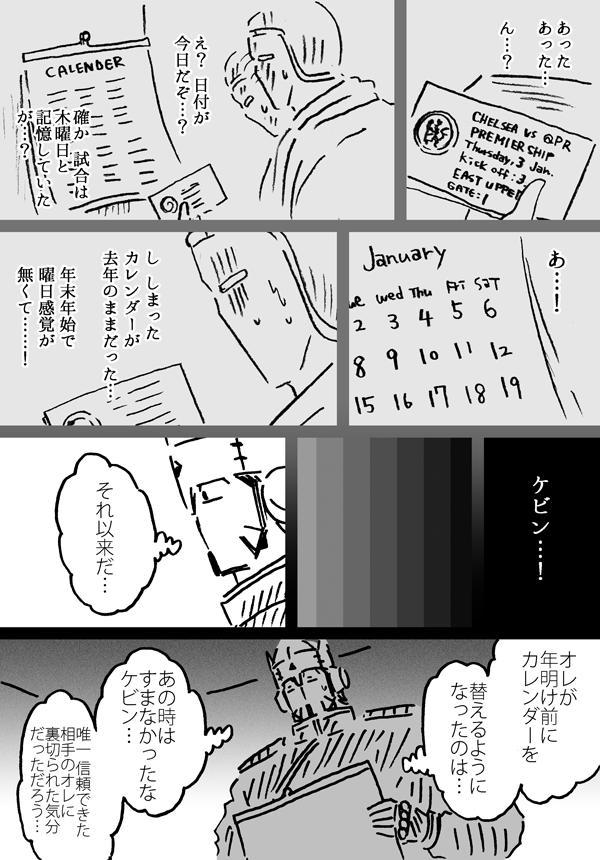 あった
あった…
ん…？
CHELSEA VS QPR
PREMIERSHIP
Thursday, 3 Jan.
kick off : 3
EAST UPPE
GATE : 1
え？ 日付が
今日だぞ…？
CALENDER
確か 試合は
木曜日と
記憶していた
が…？
あ…！
January
ue wed Thu Fri SaT
2 3 4 5 6
8 9 10 11 12
15 16 17 18 19
し しまった
カレンダーが
去年のままだった…
年末年始で
曜日感覚が
無くて……！
ケビン…！
それ以来だ…
オレが
年明け前に
カレンダーを
替えるように
なったのは…
あの時は
すまなかったな
ケビン…
唯一 信頼できた
相手のオレに
裏切られた気分
だっただろう…